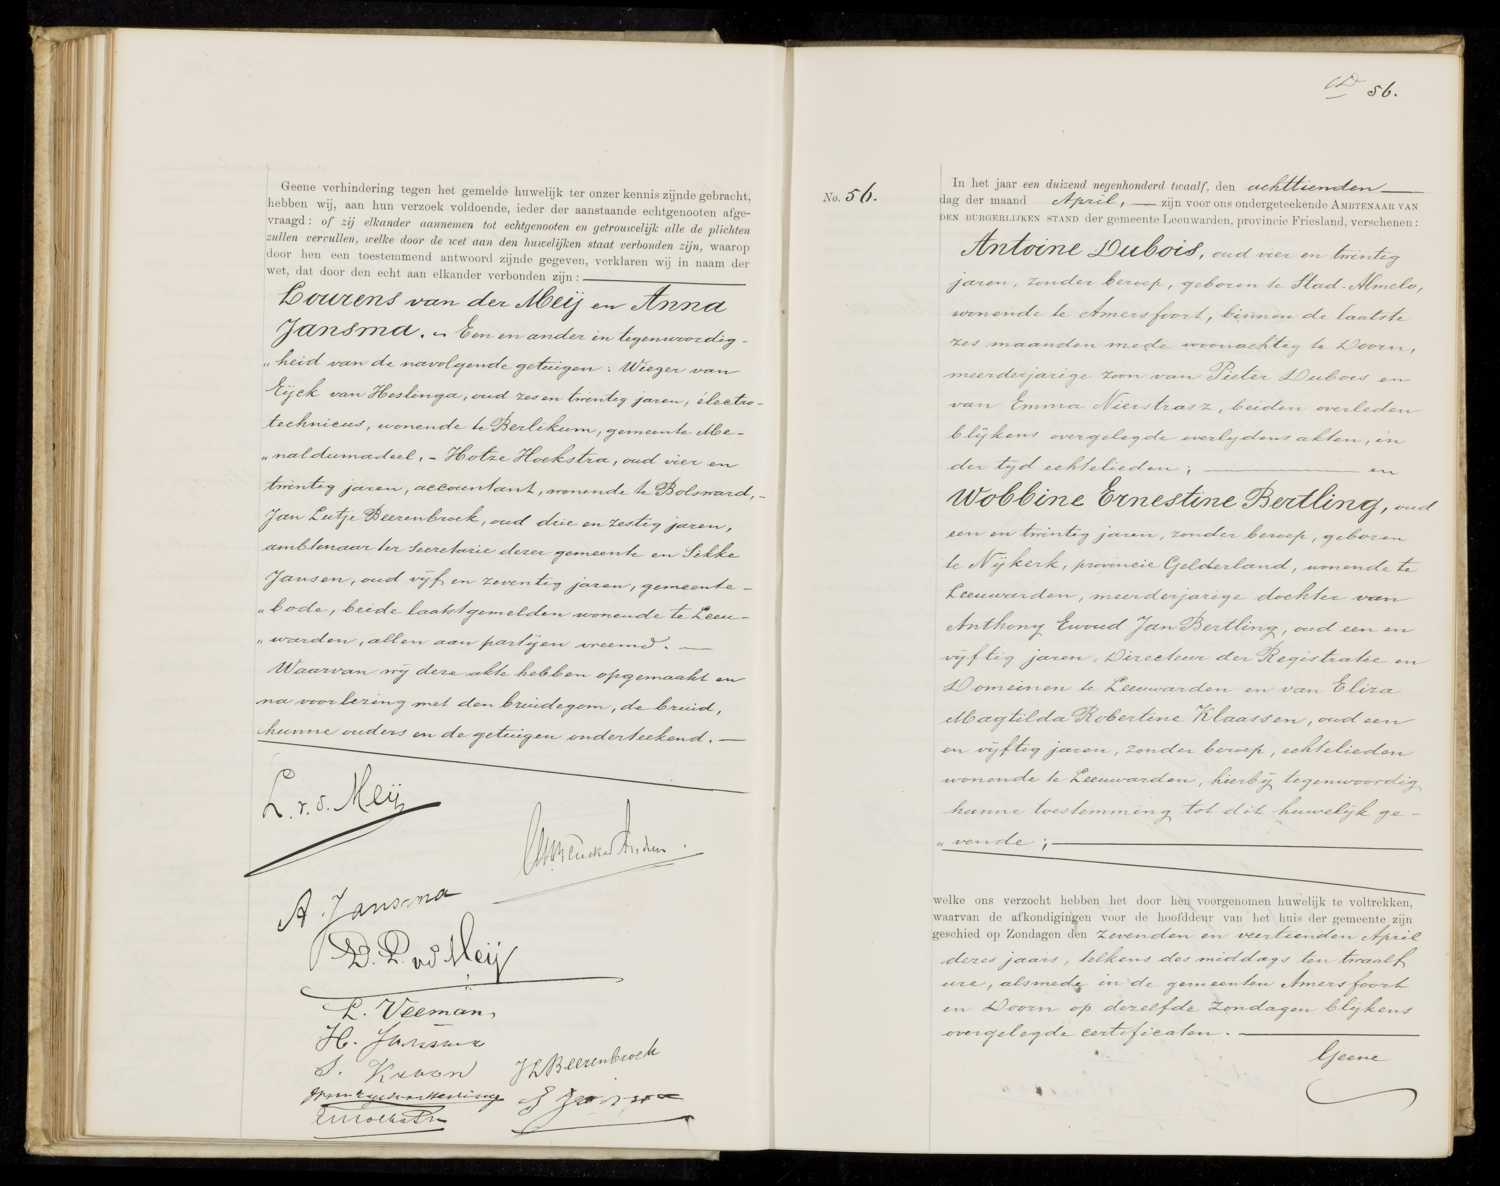 Geene verhindering tegen het gemelde huwelijk ter onzer kennis zijnde gebracht,
hebben wij, aan hun verzoek voldoende, ieder der aanstaande echtgenooten afge-
vraagd: of zij elkander aannemen tot echtgenooten en getrouwelijk alle de plichten
zullen vervullen, welke door de wet aan den huwelijken staat verbonden zijn, waarop
door hen een toestemmend antwoord zijnde gegeven, verklaren wij in naam der
wet, dat door den echt aan elkander verbonden zijn:
Lourens van der Meij en Anna
Jansma. „ Een en ander in tegenwoordig-
„heid van de navolgende getuigen: Wieger van
Eijck van Heslinga, oud zes en twintig jaren, electro-
technicus, wonende te Berlikum, gemeente Me-
„naldumadeel, - Hotze Hoekstra, oud vier en
twintig jaren, accountant, wonende te Bolsward,-
Jan Lutje Beerenbroek, oud drie en zestig jaren,
ambtenaar ter secretarie dezer gemeente en Sikke
Jansen, oud vijf en zeventig jaren, gemeente-
„bode, beide laatstgemelden wonende te Leeu-
„warden, allen aan partijen vreemd. —
Waarvan wij deze akte hebben opgemaakt en
na voorlezing met den bruidegom, de bruid,
hunne ouders en de getuigen onderteekend. —
L. v. d. Meij
A. Jansma
D. P. v d Meij
L. Veeman
H. Jansma
S. Kroon
JLBeerenbroek
56.
No. 56.
In het jaar een duizend negenhonderd twaalf, den achttienden
dag der maand April, — zijn voor ons ondergeteekende AMBTENAAR VAN
DEN BURGERLIJKEN STAND der gemeente Leeuwarden, provincie Friesland, verschenen:
Antoine Dubois, oud vier en twintig
jaren, zonder beroep, geboren te Stad-Almelo,
wonende te Amersfoort, binnen de laatste
zes maanden mede woonachtig te Doorn,
meerderjarige zoon van Pieter Dubois en
van Emma Nierstrasz, beiden overleden
blijkens overgelegde overlijdens akten, in
der tijd echtelieden; — en
Wobbine Ernestine Bertling, oud
een en twintig jaren, zonder beroep, geboren
te Nijkerk, provincie Gelderland, wonende te
Leeuwarden, meerderjarige dochter van
Anthony Ewoud Jan Bertling, oud een en
vijftig jaren, Directeur der Registratie en
Domeinen te Leeuwarden en van Eliza
Magtilda Robertine Klaassen, oud een
en vijftig jaren, zonder beroep, echtelieden
wonende te Leeuwarden, hierbij tegenwoordig
hunne toestemming tot dit huwelijk ge-
„vende; —
welke ons verzocht hebben het door hen voorgenomen huwelijk te voltrekken,
waarvan de afkondigingen voor de hoofddeur van het huis der gemeente zijn
geschied op Zondagen den zevenden en veertienden April
dezes jaars, telkens des middags ten twaalf
ure, alsmede in de gemeenten Amersfoort
en Doorn op dezelfde Zondagen blijkens
overgelegde certificaten. —
Geene